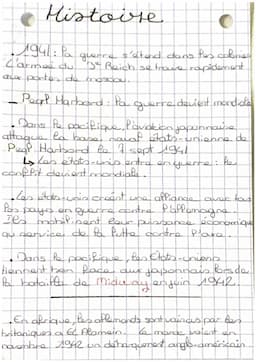 Histoire
. 1941: la guerre s'étend dans les colonies
L'armée du 3e Reich se trouve rapidement
aux portes de moscou.
_ Pearl Harboard: la guerre devient mondiale
. Dans le pacifique, l'aviation japonnaise
attaque la base naval états-unienne de
Pearl Harboard le 7 sept 1941
↳ les états-unis entre en guerre: le
conflit devient mondiale.
. Les états-unis créent une alliance avec tous
les pays en guerre contre l'allemagne.
Ils mobilisent leur puissance économique
au service de la lutte contre l'axe.
. Dans le pacifique, les états-uniens
tiennent bon face aux japonnais lors de
la bataille de Midway en juin 1942.
. En afrique, les allemands sont vaincus par les
britaniques à El Alamein. le maroc voient en
novembre 1942 un débarquement anglo-américain